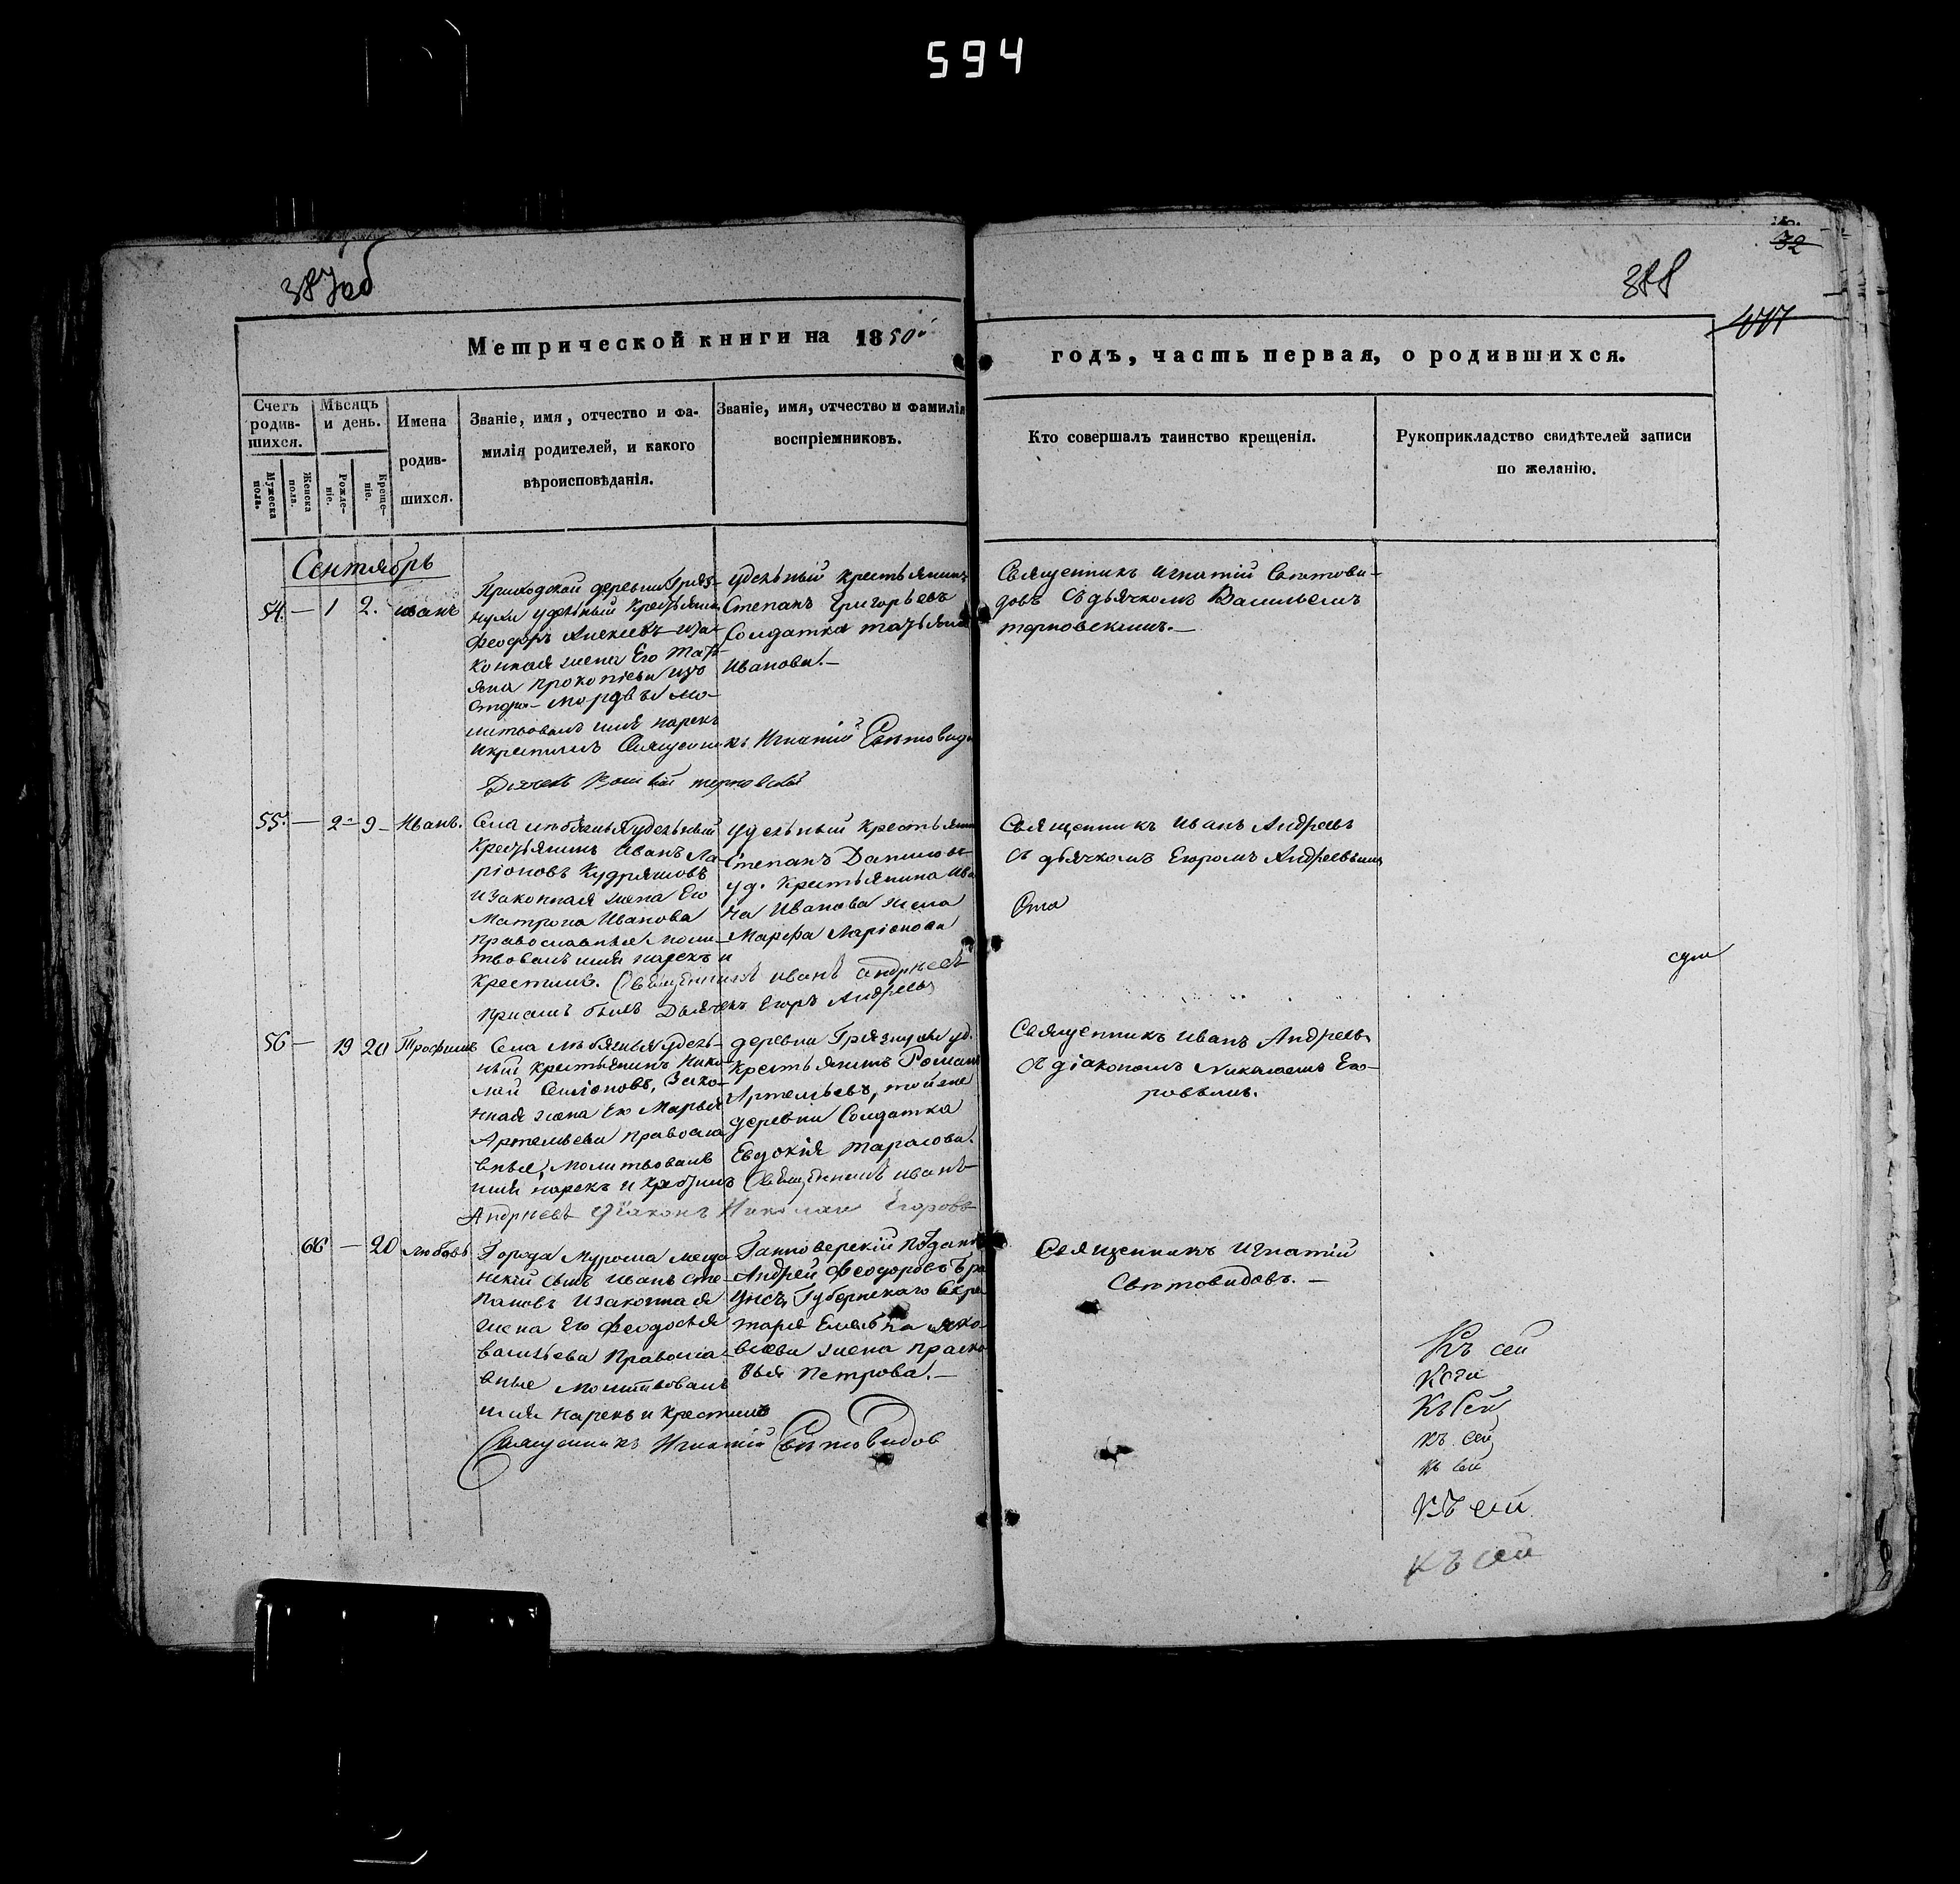 594
387об
388
32
Метрической книги на 1850й
годъ, часть первая, о родившихся.
Счетъ родив-шихся.
Мужеска пола.
Женска пола.
Мѣсяцъ и день.
Рожде-ніе.
Креще-ніе.
Имена
родив-
шихся.
Званіе, имя, отчество и фа-
милія родителей, и какого
вѣроисповѣданія.
Званіе, имя, отчество и фамилія
воспріемниковъ.
Кто совершалъ таинство крещенія.
Рукоприкладство свидѣтелей записи
по желанію.
Сентябрь
54. — 1 2. иванъ
Приходской деревни Гряз-
нухи удѣльный крестьянинъ
Феодоръ Алексѣевъ иза-
конная жена Его Тать-
яна Прокопіева изъ
мордвы мо-
литвовалъ имя нарекъ
икрестилъ Священникъ Игнатій Свѣтовидовъ
Дьячекъ Василій терновскій
удельный крестьянинъ
Степанъ Григорьевъ
Солдатка татьяна
Иванова. —
Священникъ Игнатій Свѣтови-
довъ Съ дьячкомъ Васильемъ
терновскимъ. —
55. — 2 9 — Иванъ.
Села удельный
крестьянинъ Иванъ Ла-
ріоновъ Кудряшовъ
изаконная жена Его
Матрона Иванова
православные моли-
твовалъ имя нарекъ и
крестилъ. Священникъ иванъ андрѣевъ
при семъ былъ Дьячекъ Егоръ Андреевъ
удельный крестьянинъ
Степанъ Даниловъ
уд. крестьянина Ива
на Иванова жена
Марфа Ларіонова
Священникъ Иванъ Андреевъ
съ дьячкомъ Егоромъ Андреевымъ
56 — 19 20 Трофимъ
Села удель-
ный крестьянинъ Нико-
лай Симіоновъ, Зако-
нная жена Его Марья
Артемьева правосла
вные, молитвовалъ
имя нарекъ и крестилъ Священникъ иванъ
Андрѣевъ діаконъ Николай Егоровъ
деревни Грязнухи уд.
крестьянинъ Романъ
Артемьевъ, той же
деревни Солдатка
Евдокія тарасова.
Священникъ Иванъ Андреевъ
съ діакономъ Николаемъ Его-
ровымъ.
66 — 20 любовь
Города Мурома меща
нскій сынъ Иванъ Сте-
пановъ изаконная
жена Его Феодосья
васильева Правосла-
вные молитвовалъ
имя нарекъ и крестилъ
Священникъ Игнатій Свѣтовидов
Ганноверскій Поддан
Андрей Феодоровъ Бра
унсъ, Губернскаго Секре
таря Емельяна Яко-
влева жена праско
вья Петрова. —
Священникъ Игнатій
Свѣтовидовъ. —
Къ сей
Къ сей
къ сей
къ сей
къ сей
къ сей